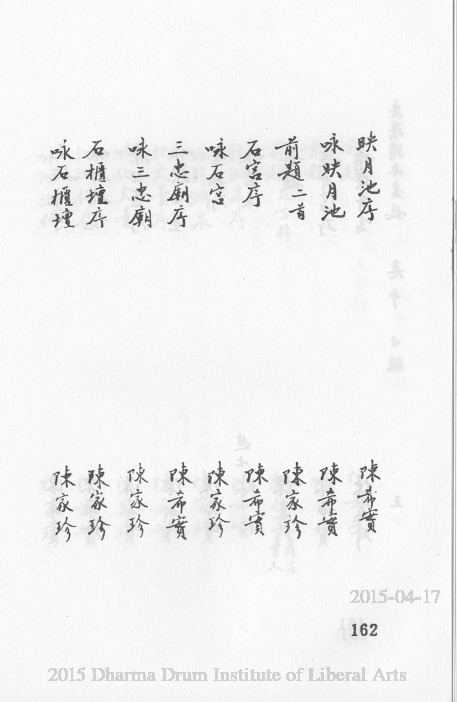 映月池序 陳希實
咏映月池 陳希實
前題二首 陳家珍
石宮序 陳希實
咏石宮 陳家珍
三忠廟序 陳希實
咏三忠廟 陳家珍
石櫃壇序 陳家珍
咏石櫃壇 陳家珍
2015-04-17
162
2015 Dharma Drum Institute of Liberal Arts